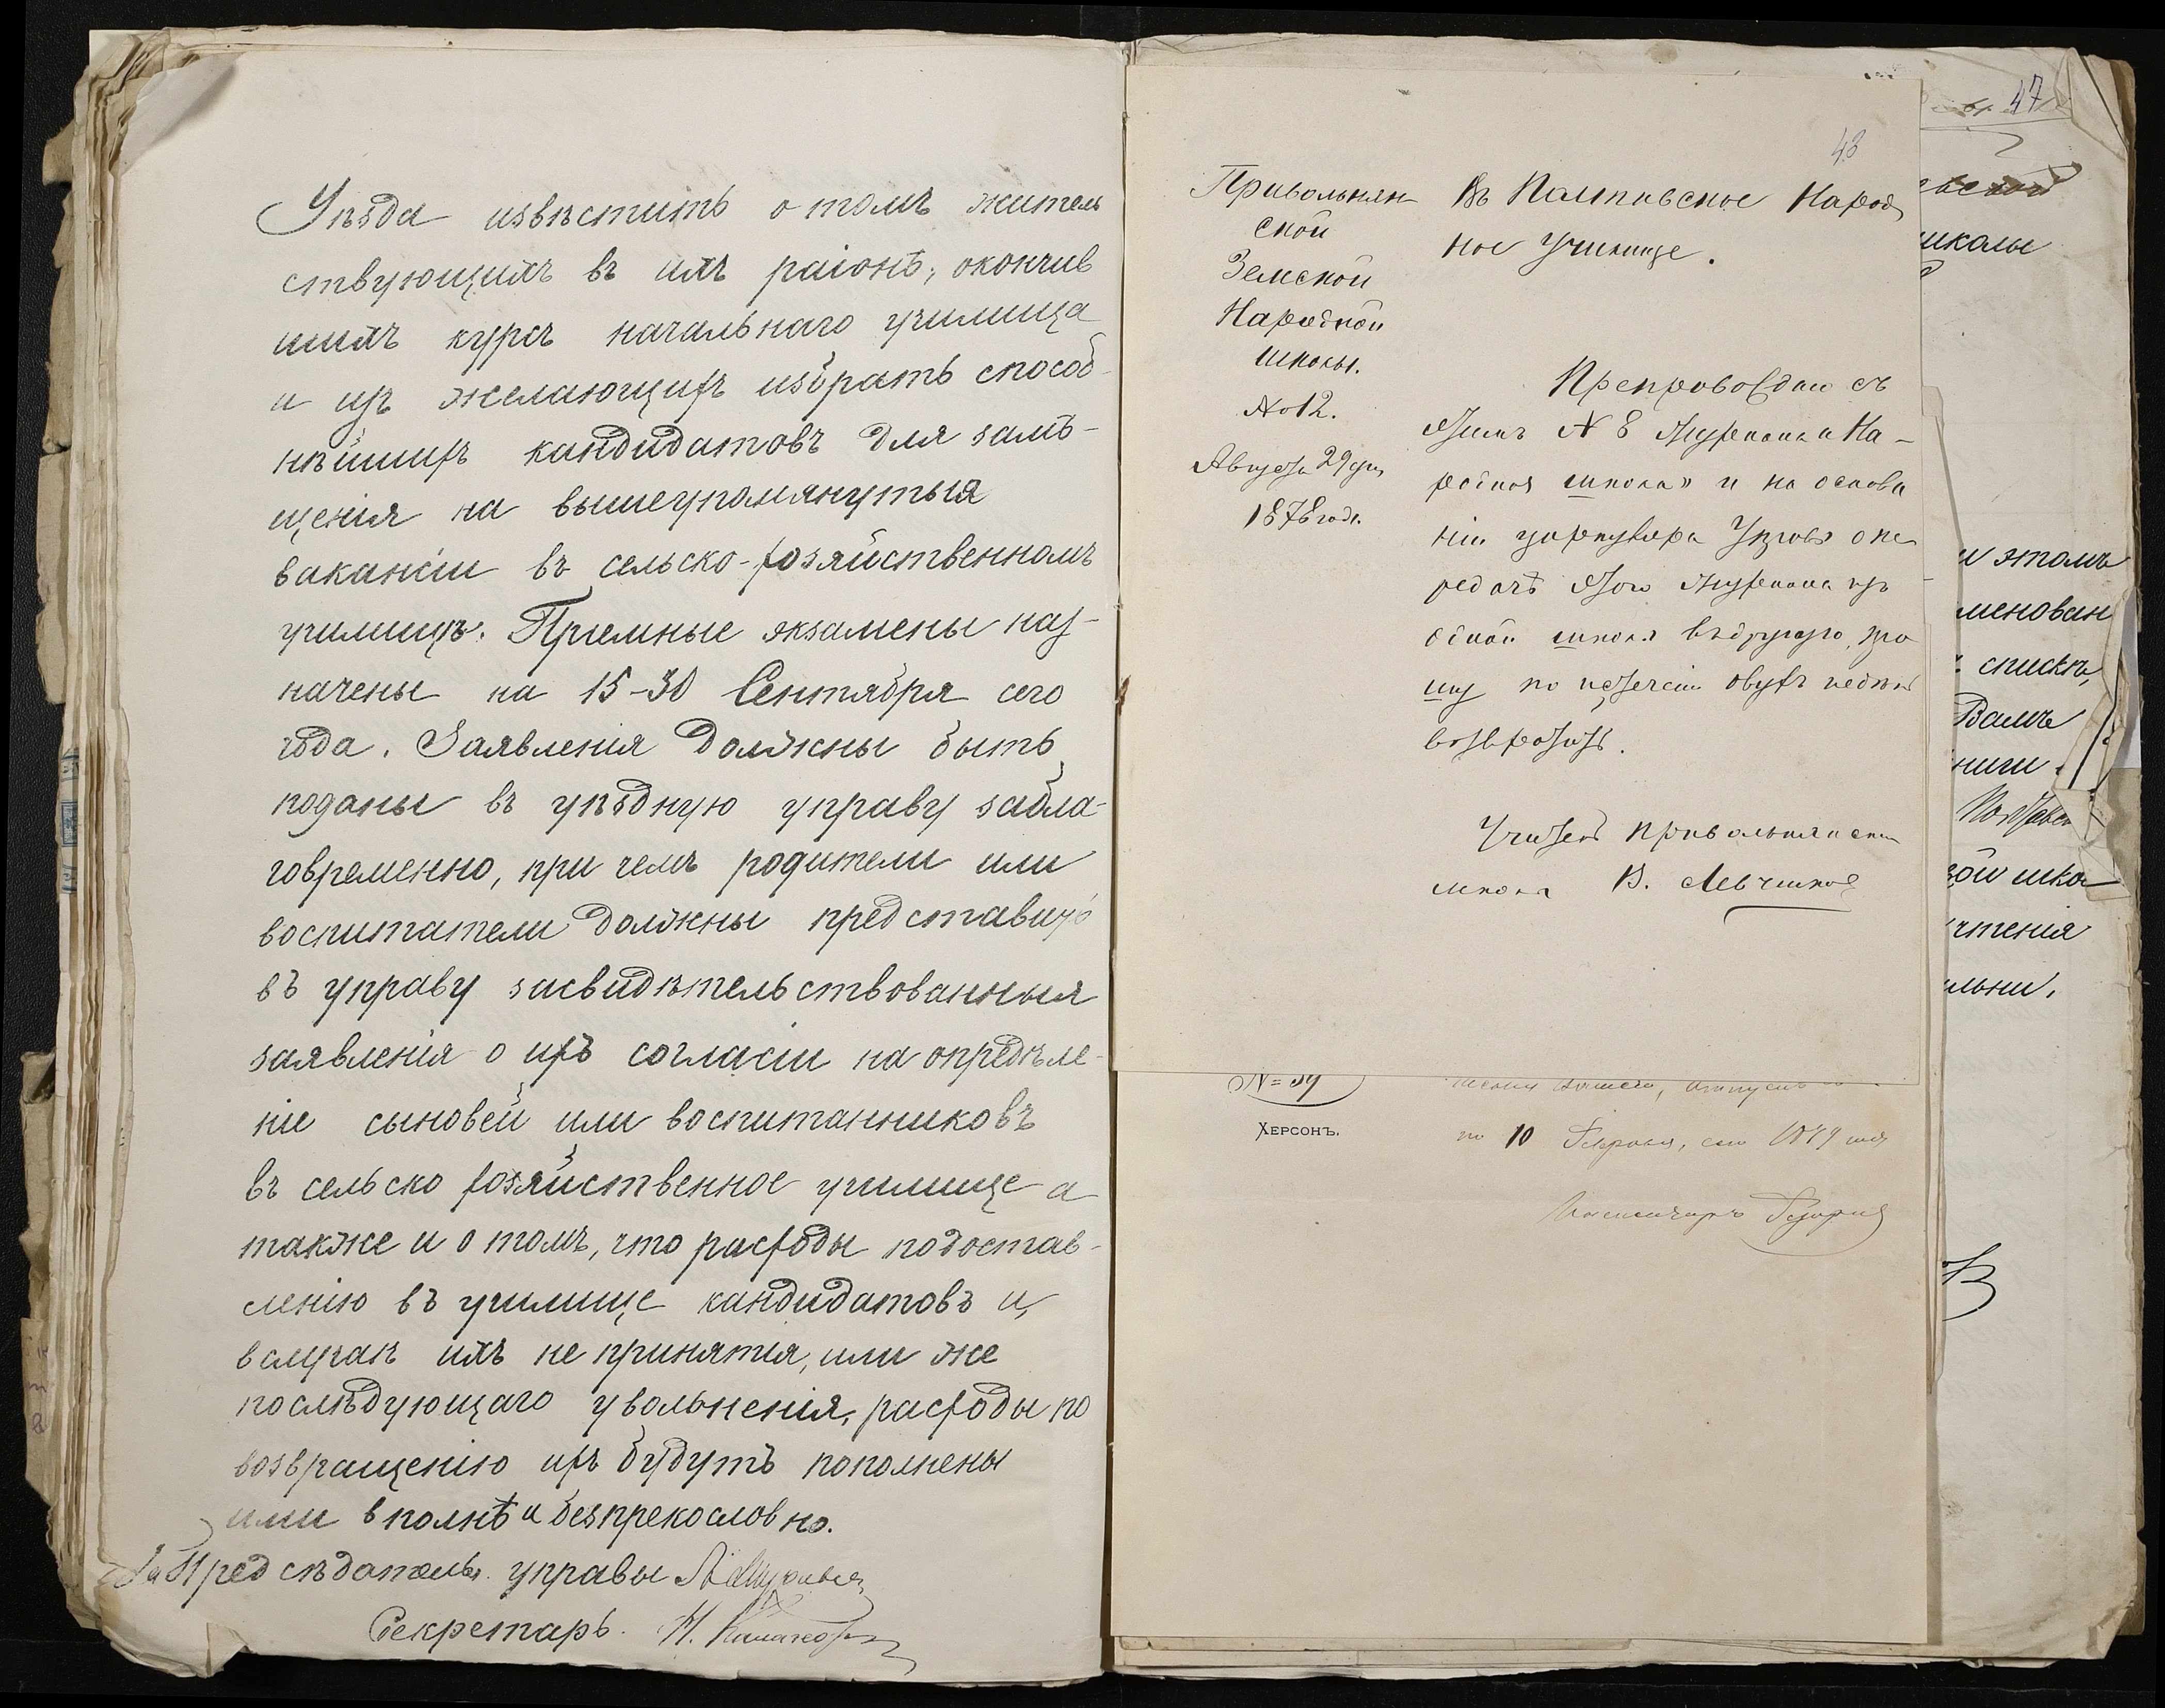 Уѣзда извѣстить о томъ житель
ствующимъ въ ихъ раіонѣ, окончив
шимъ курсъ начальнаго училища
и изъ желающихъ избрать способ-
нѣйшихъ кандидатовъ для замѣ-
щенія на вышеупомянутыя
вакансіи въ сельско-хозяйственномъ
училищѣ. Пріемные экзамены наз-
начены на 15-30 Сентября сего
года. Заявленія должны быть
поданы въ уѣздную управу забла-
говременно, при чемъ родители или
воспитатели должны представить
въ управу засвидѣтельствованныя
заявленія о ихъ согласіи на опредѣле-
ніе сыновей или воспитанниковъ
въ сельско хозяйственное училище а
также и о томъ, что расходы по достав-
ленію въ училище кандидатовъ и,
в случаѣ ихъ не принятія, или же
послѣдующаго увольненія, расходы по
возвращенію ихъ будутъ пополнены
ими вполнѣ и безпрекословно.
За Предсѣдателя управы
Секретарь. Н.
48
Привольнян
ской
Земской
Народной
школы.
№ 12.
Августа 29 дня
1878 года.
Въ Палтиевское Народ
ное Училище.
Препровождаю съ
этимъ № 8 журнала "На-
родная школа" и на основа
ніи циркуляра Управы о пе
редачѣ этого журнала изъ
одной школы въ другую, про
шу по истеченіи двухъ недѣль
возвратить.
Учитель Привольнянской
школы В. Левчинков
№ 59
Херсонъ.
по 10 Февраля, сего 1879 года
47
школы
этомъ
менован
спискѣ,
Вамъ
ниги.
ой шко
чтенія
льни.